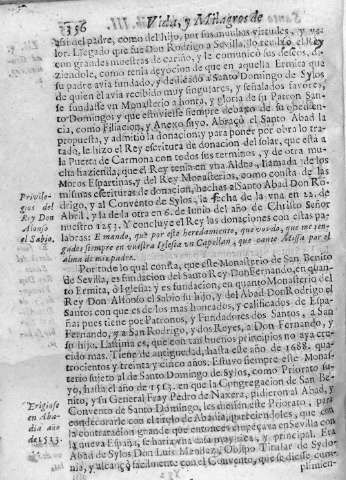 336 Vida, y Milagros de
assi del padre, como del hijo, por sus muchas virtudes, y va-
lor. Llegado que fue Don Rodrigo a Sevilla, lo recibiò el Rey
con grandes muestras de cariño, y le comunicò sus deseos, di-
ziendole, como tenia devocion de que en aquella Ermita que
su padre avia fundado, y dedicado a Santo Domingo de Sylos
de quien èl avia recibido muy singulares, y señalados favores,
se fundasse vn Monasterio a honra, y gloria de su Patron San-
to Domingo; y que estuviesse siempre debaxo de su obedien-
cia, como Filiacion, y Anexo suyo. Abraçò el Santo Abad la
propuesta, y admitiò la donacion; y para poner por obra lo tra-
tado, le hizo el Rey escritura de donacion del solar, que està a
la Puerta de Carmona con todos sus terminos, y de otra mu-
cha hazienda, que el Rey tenia en vna Aldea, llamada de los
Moros Espartinas, y del Rey Monasterios, como consta de las
mismas escrituras de donacion, hechas al Santo Abad Don Ro-
drigo, y al Convento de Sylos, la fecha de la vna en 12. de
Abril, y la de la otra en 6. de Junio del año de Christo Señor
nuestro 1253. Y concluye el Rey las donaciones con estas pa-
labras: E mando, que por este heredamiento, que vos do, que me ten-
gades siempre en vuestra Iglesia vn Capellan, que cante Missa por el
alma de mi padre.
Privile-
gios del
Rey Don
Alonso
el Sabio.
Por todo lo qual consta, que este Monasterio de San Benito
de Sevilla, es fundacion del Santo Rey Don Fernando, en quan-
to Ermita, ò Iglesia: y es fundacion, en quanto Monasterio del
Rey Don Alfonso el Sabio su hijo, y del Abad Don Rodrigo el
Santo; con que es de los mas honrados, y calificados de Espa-
ña; pues tiene por Patronos, y Fundadores dos Santos, a San
Fernando, y a San Rodrigo, y dos Reyes, a Don Fernando, y
su hijo. Lastima es, que con tan buenos principios no aya cre-
cido mas. Tiene de antiguedad, hasta este año de 1688. qua-
trocientos y treinta y cinco años. Estuvo siempre este Monas-
terio sujeto al de Santo Domingo de Sylos, como Priorato su-
yo, hasta el año de 1513. en que la Congregacion de San Be-
nito, y su General Fray Pedro de Naxera, pidieron al Abad, y
Convento de Santo Domingo, les diessen este Priorato, para
engrandecerle con el titulo de Abadia, pareciendoles, que con
la contratacion grande que entonces empeçava en Sevilla con
la nueva España, se haria vna casa muy rica, y principal. Era
Abad de Sylos Don Luis Mendez, Obispo Titular de Sydo-
nia, y alcançò facilmente con el Convento, que se diesse cum-
plimien-
Erigiose
en Aba-
dia año
de 1513.